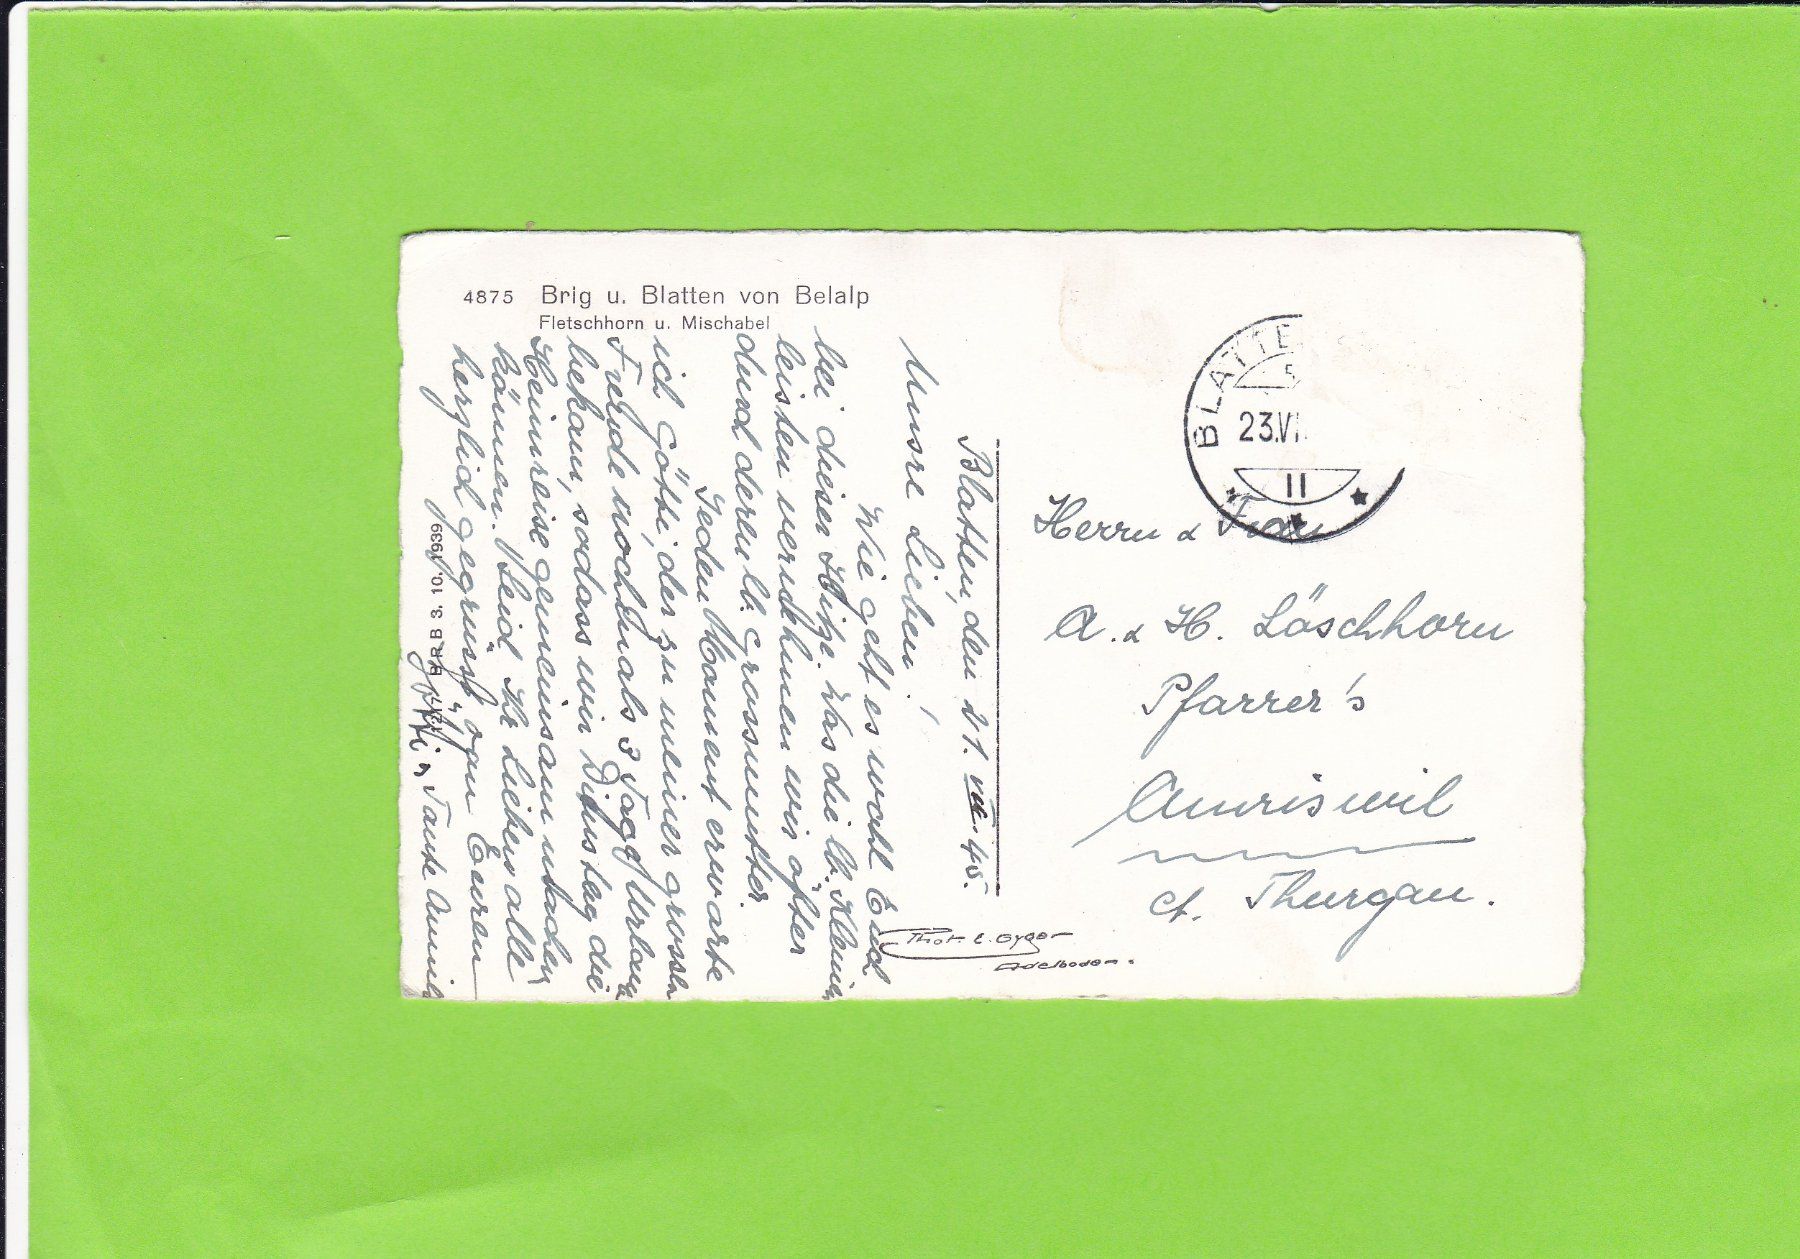 4875 Brig u. Blatten von Belalp
Fletschhorn u. Mischabel
Blatten, den 21. VII. 45.
Unsre Lieben!
Wie geht es wohl Euch
bei dieser Hitze. Was die lb. Kleinen
leisten vernehmen wir öfter
durch deren lb. Grossmutter.
Jeden Moment erwarte
ich Götti, der zu meiner grossen
Freude nochmals 3 Tage Urlaub
bekam, sodass wir Dienstag die
Heimreise gemeinsam machen
können. Seid Ihr Lieben alle
herzlich gegrüsst von Euren
Götti u. Tante Annie
BRB 3. 10. 1939
Phot. E. Gyger
Adelboden.
BLATTE
23.VI
11
Herrn & Frau
A. & H. Löschhorn
Pfarrer's
Amriswil
Ct. Thurgau.